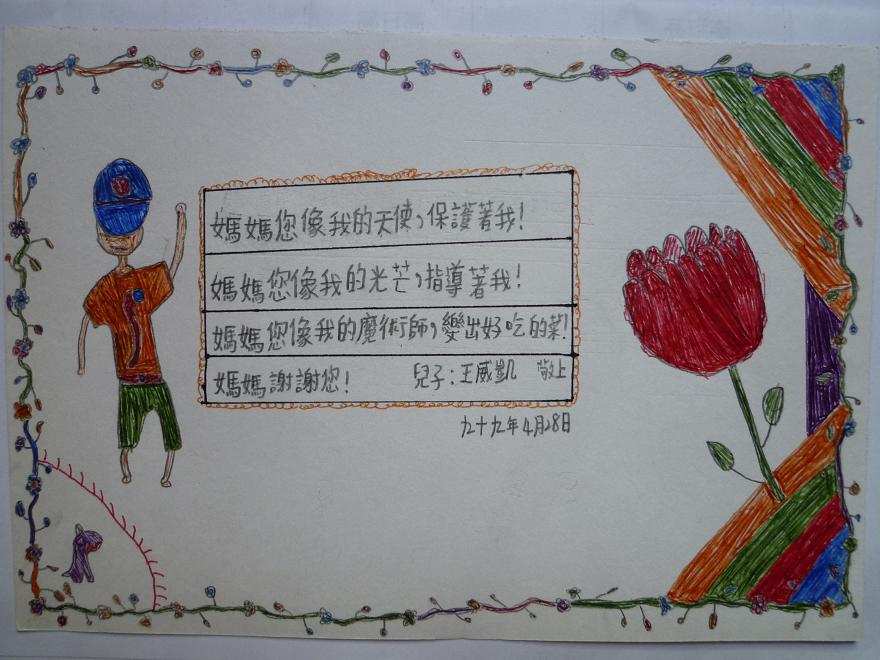 媽媽您像我的天使，保護著我！
媽媽您像我的光芒，指導著我！
媽媽您像我的魔術師，變出好吃的菜！
媽媽謝謝您！ 兒子：王威凱 敬上
九十九年4月28日